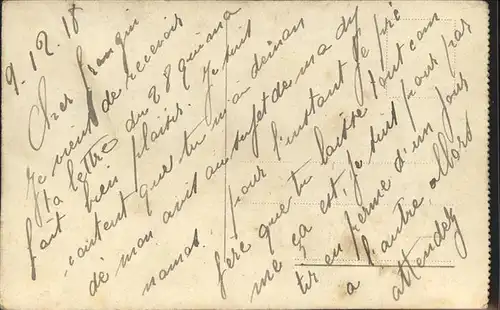 9-12-18
Cher frangin
Je vient de recevoir
ta lettre du 28 qui m'a
fait bien plaisir. Je suit
contant que tu m'a deman
dé mon avis au sujet de ma dy
namo. pour l'instant je pré
fère que tu laisse tout com
me ça est, je suit pour par
tir en ferme d'un jour
a l'autre allors
attendez